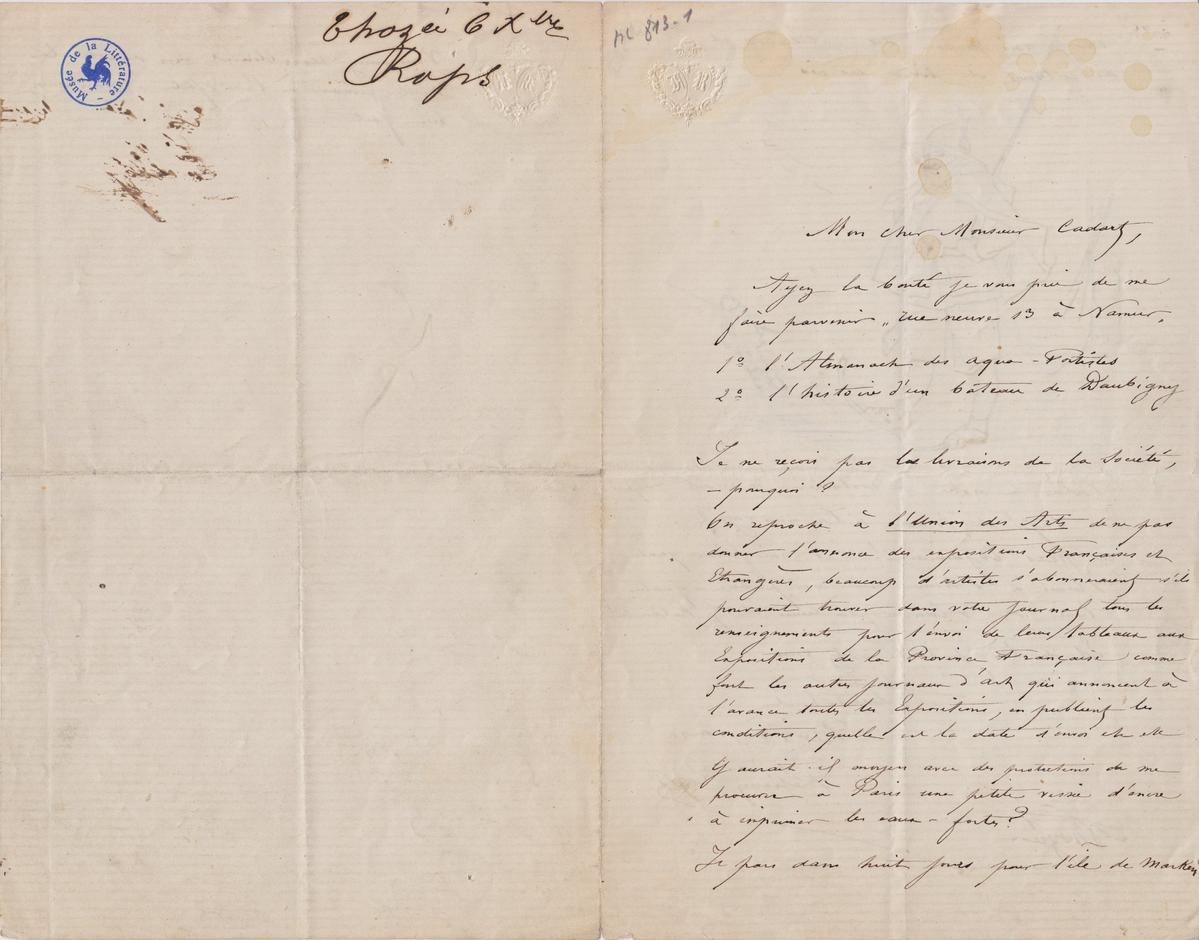 Musée de la Littérature
Thozée 6 Xbre
Rops
ML 813-1
Mon cher Monsieur Cadart,
Ayez la bonté je vous prie de me
faire parvenir „ rue neuve 13 à Namur.
1º l'Almanach des aqua-Fortistes
2º l'histoire d'un bateau de Daubigny
Je ne reçois pas les livraisons de la Société,
– pourquoi ?
On reproche à l'Union des Arts de ne pas
donner l'annonce des expositions Françaises et
Etrangères, beaucoup d'artistes s'abonneraient s'ils
pouvaient trouver dans votre journal tous les
renseignements pour l'envoi de leurs tableaux aux
Expositions de la Province Française comme
font les autres journaux d'art qui annoncent à
l'avance toutes les Expositions, en publient les
conditions, quelle est la date d'envoi etc etc
Y aurait-il moyen avec des protections de me
procurer à Paris une petite vessie d'encre
à imprimer les eaux-fortes ?
Je pars dans huit jours pour l'île de Marken